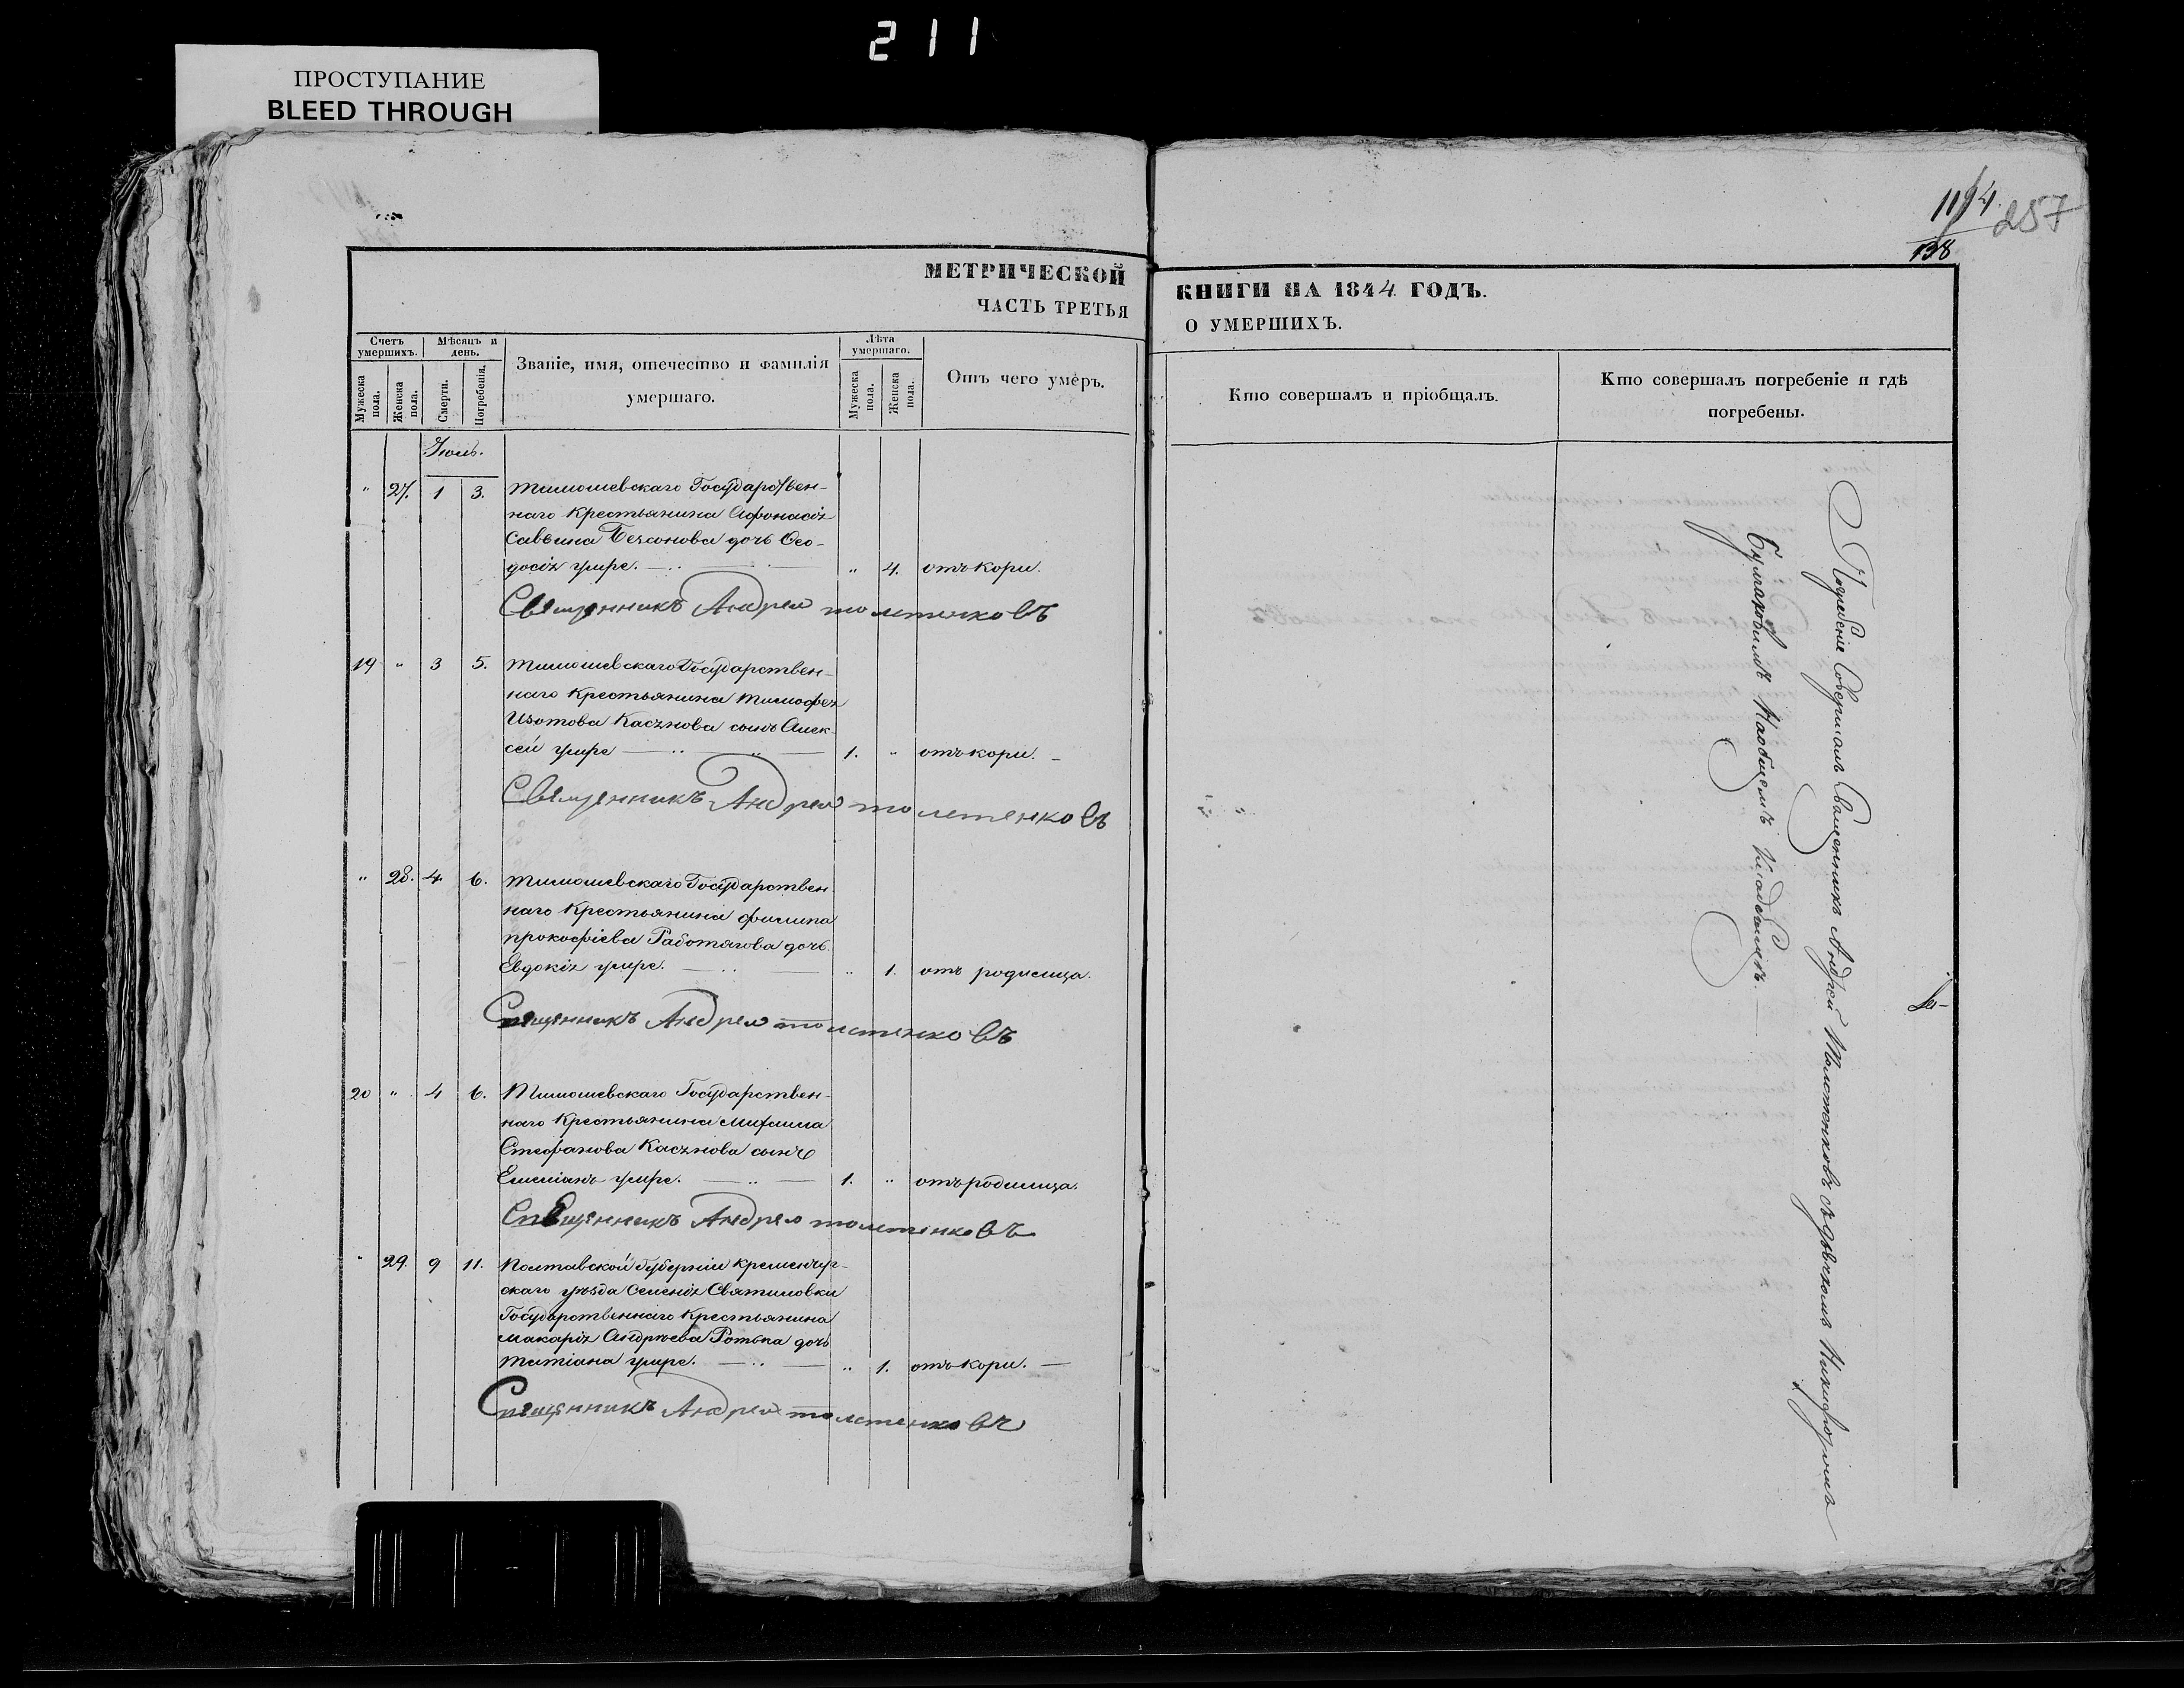 211
ПРОСТУПАНИЕ
BLEED THROUGH
1194 257
138
МЕТРИЧЕСКОЙ
ЧАСТЬ ТРЕТЬЯ
КНИГИ НА 1844 ГОДЪ.
О УМЕРШИХЪ.
Счетъ умершихъ.
Мѣсяцъ и день.
Званіе, имя, отечество и фамилія умершаго.
Лѣта умершаго.
Отъ чего умеръ.
Кто совершалъ и пріобщалъ.
Кто совершалъ погребеніе и гдѣ погребены.
Мужеска пола.
Женска пола.
Смерти.
Погребенія.
Мужеска пола.
Женска пола.
Іюль.
" 27. 1 3. Тимошевскаго Государствен-
наго крестьянина Афонасія
Саввина дочь Ѳео-
досія умре. " 4. отъ кори.
Священникъ Андрей Толстенковъ
19 " 3 5. Тимошевскаго Государствен-
наго крестьянина Тимофея
Изотова Касянова сынъ Алек
сей умре 1. " отъ кори.
Священникъ Андрей Толстенковъ
" 28. 4. 6. Тимошевскаго Государствен
наго крестьянина Филипа
Прокофіева Работягова дочь
Евдокія умре. " 1. отъ родимца.
Священникъ Андрей Толстенковъ
20 " 4 6. Тимошевскаго Государствен-
наго крестьянина Михаила
Стефанова Касянова сынъ
Емеліанъ умре. 1. " отъ родимца.
Священникъ Андрей Толстенковъ
" 29 9 11. Полтавской Губерніи Кременчуг-
скаго уѣзда Селенія Святиловки
Государственнаго крестьянина
Макарія Андрѣева дочь
Татіана умре. " 1. отъ кори.
Священникъ Андрей Толстенковъ
Погребеніе Совершалъ Священникъ Андрей Толстенковъ съ дьячкомъ Никифоромъ
Булгаковымъ На общемъ кладбищѣ.